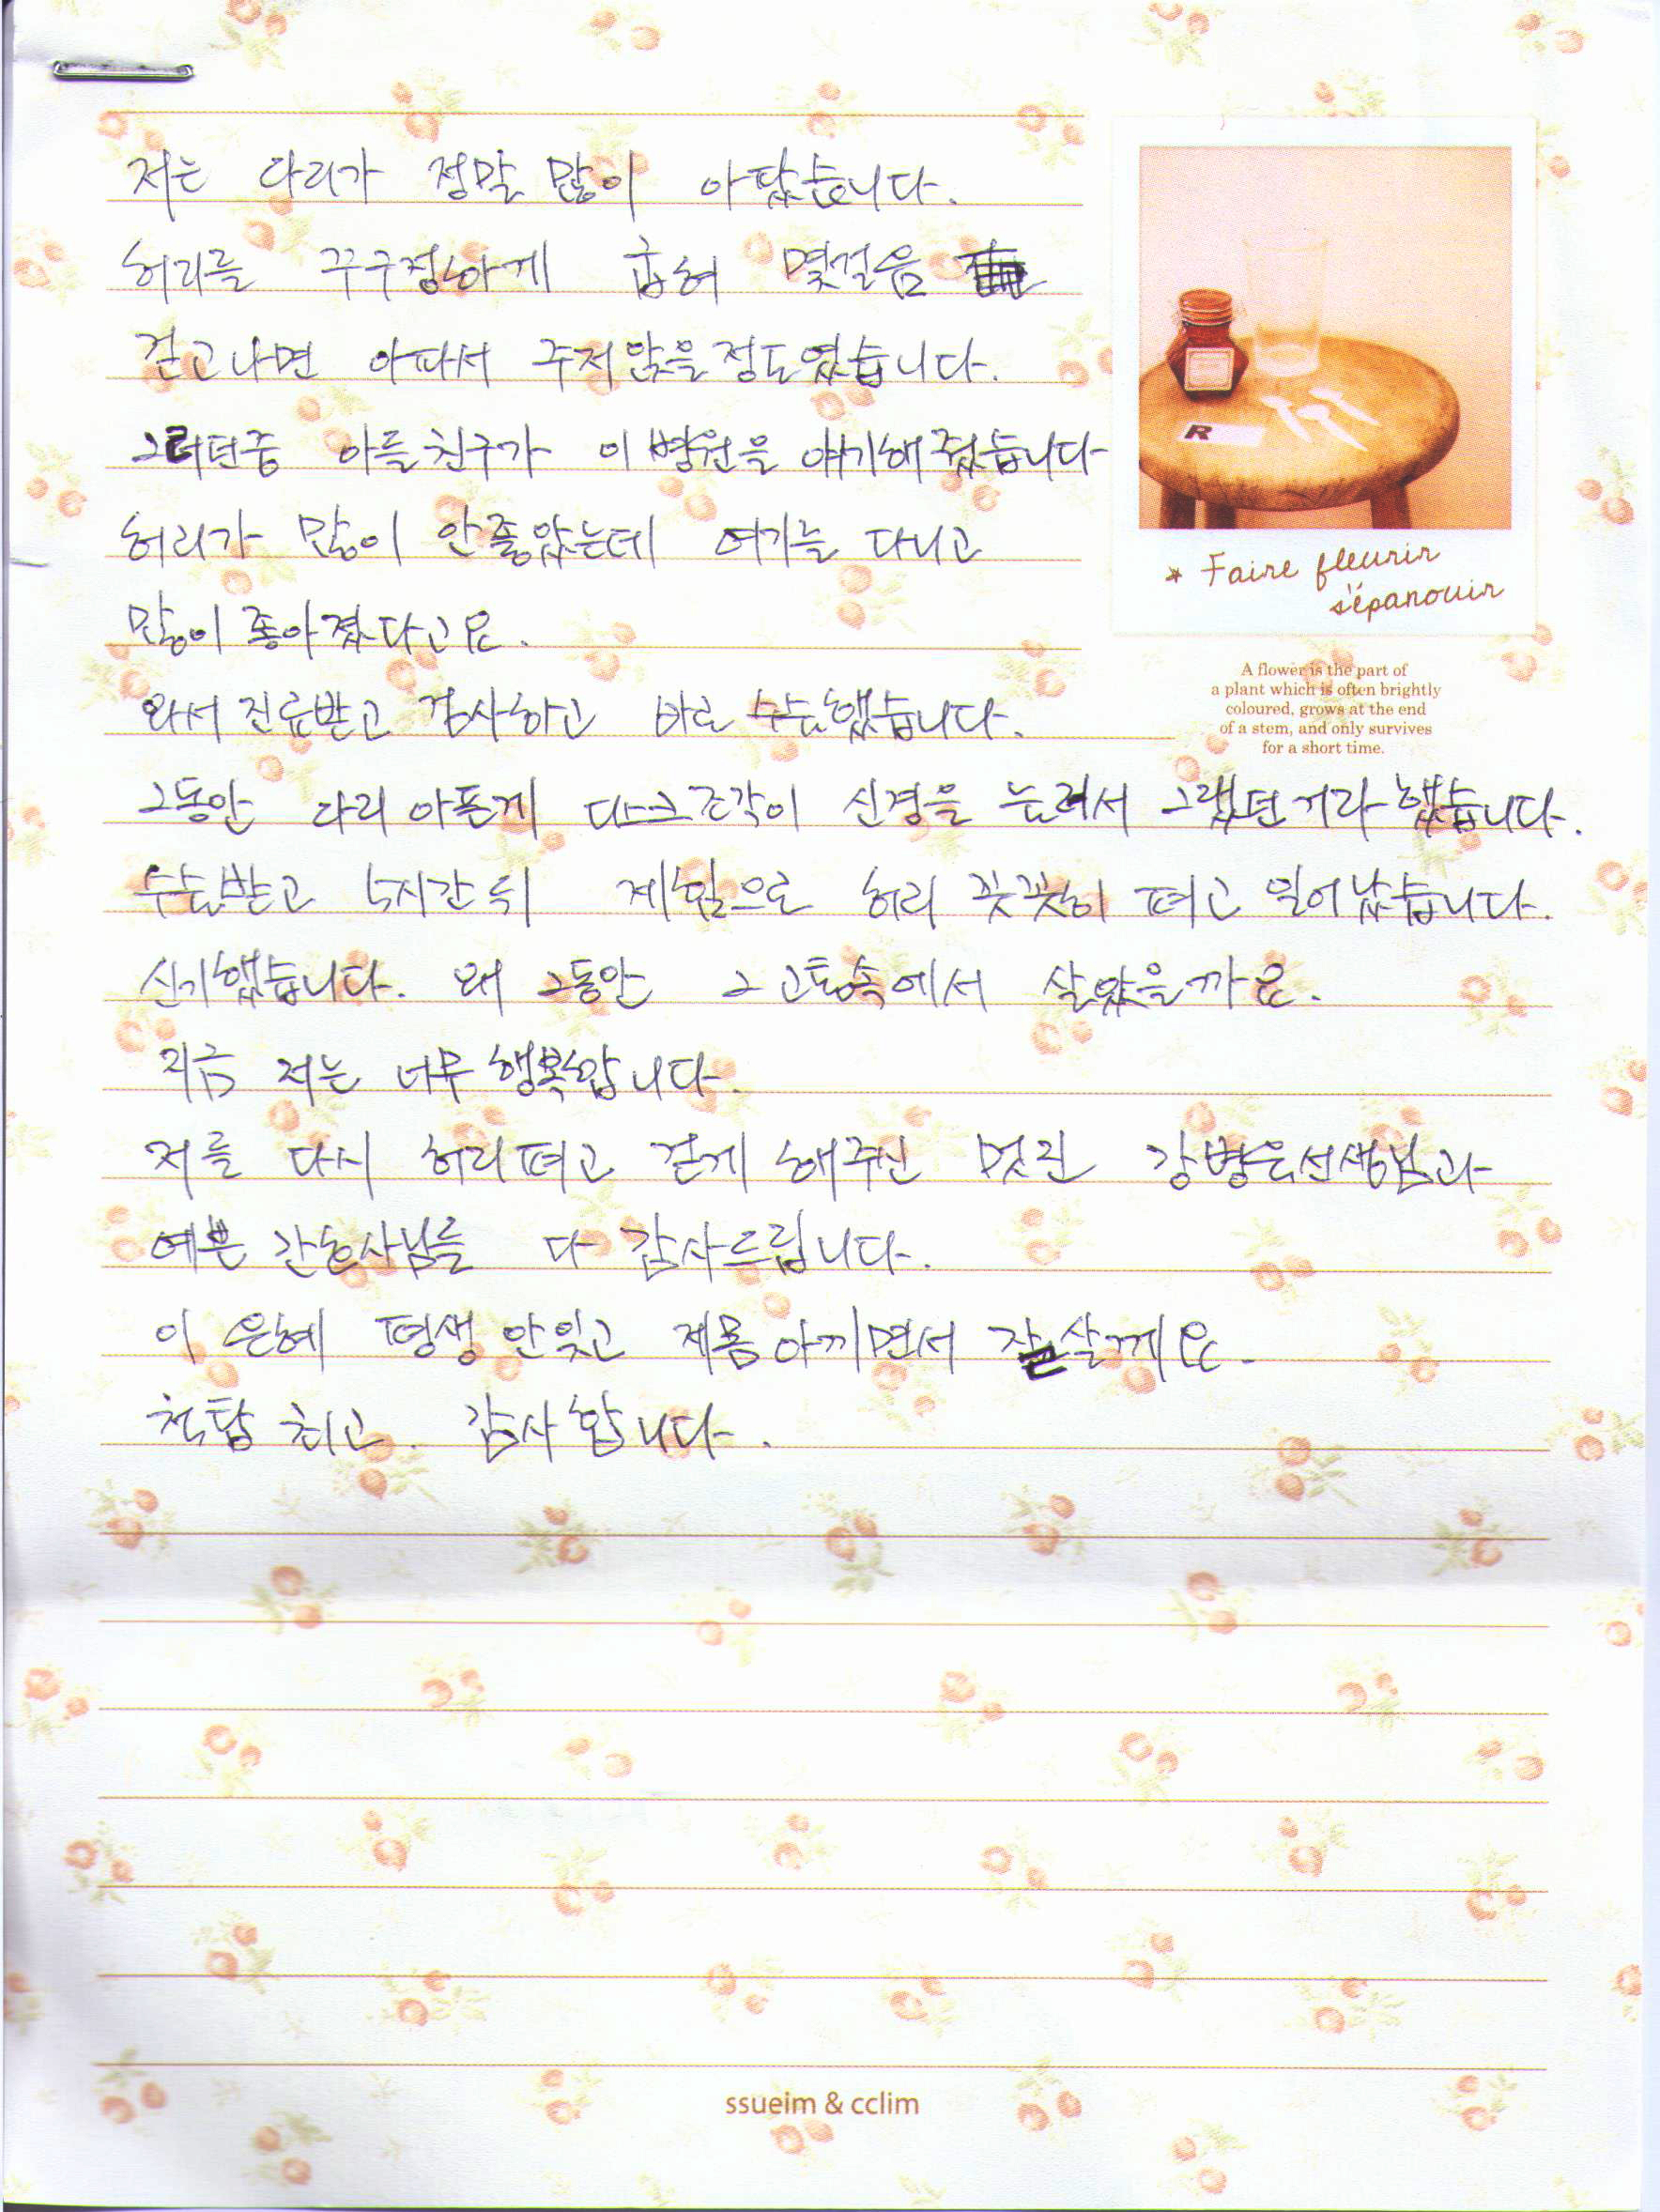 저는 다리가 정말 많이 아팠습니다.
허리를 꾸구정하게 굽혀 몇걸음
걷고나면 아파서 주저앉을정도였습니다.
그러던중 아들친구가 이병원을 얘기해줬습니다
허리가 많이 안좋았는데 여기를 다니고
많이좋아졌다고요.
와서 진료받고 검사하고 바로 수술했습니다.
그동안 다리아픈게 디스크조각이 신경을 눌려서 그랬던거라했습니다.
수술받고 4시간뒤 제힘으로 허리 꼿꼿히 펴고 일어났습니다.
신기했습니다. 왜 그동안 그고통속에서 살았을까요.
지금 저는 너무 행복합니다.
저를 다시 허리펴고 걷게 해주신 멋진 강병은선생님과
예쁜 간호사님들 다 감사드립니다.
이 은혜 평생 안잊고 제몸아끼면서 잘살께요.
척탑 최고. 감사합니다.
* Faire fleurir
s'épanouir
A flower is the part of
a plant which is often brightly
coloured, grows at the end
of a stem, and only survives
for a short time.
R
ssueim & cclim